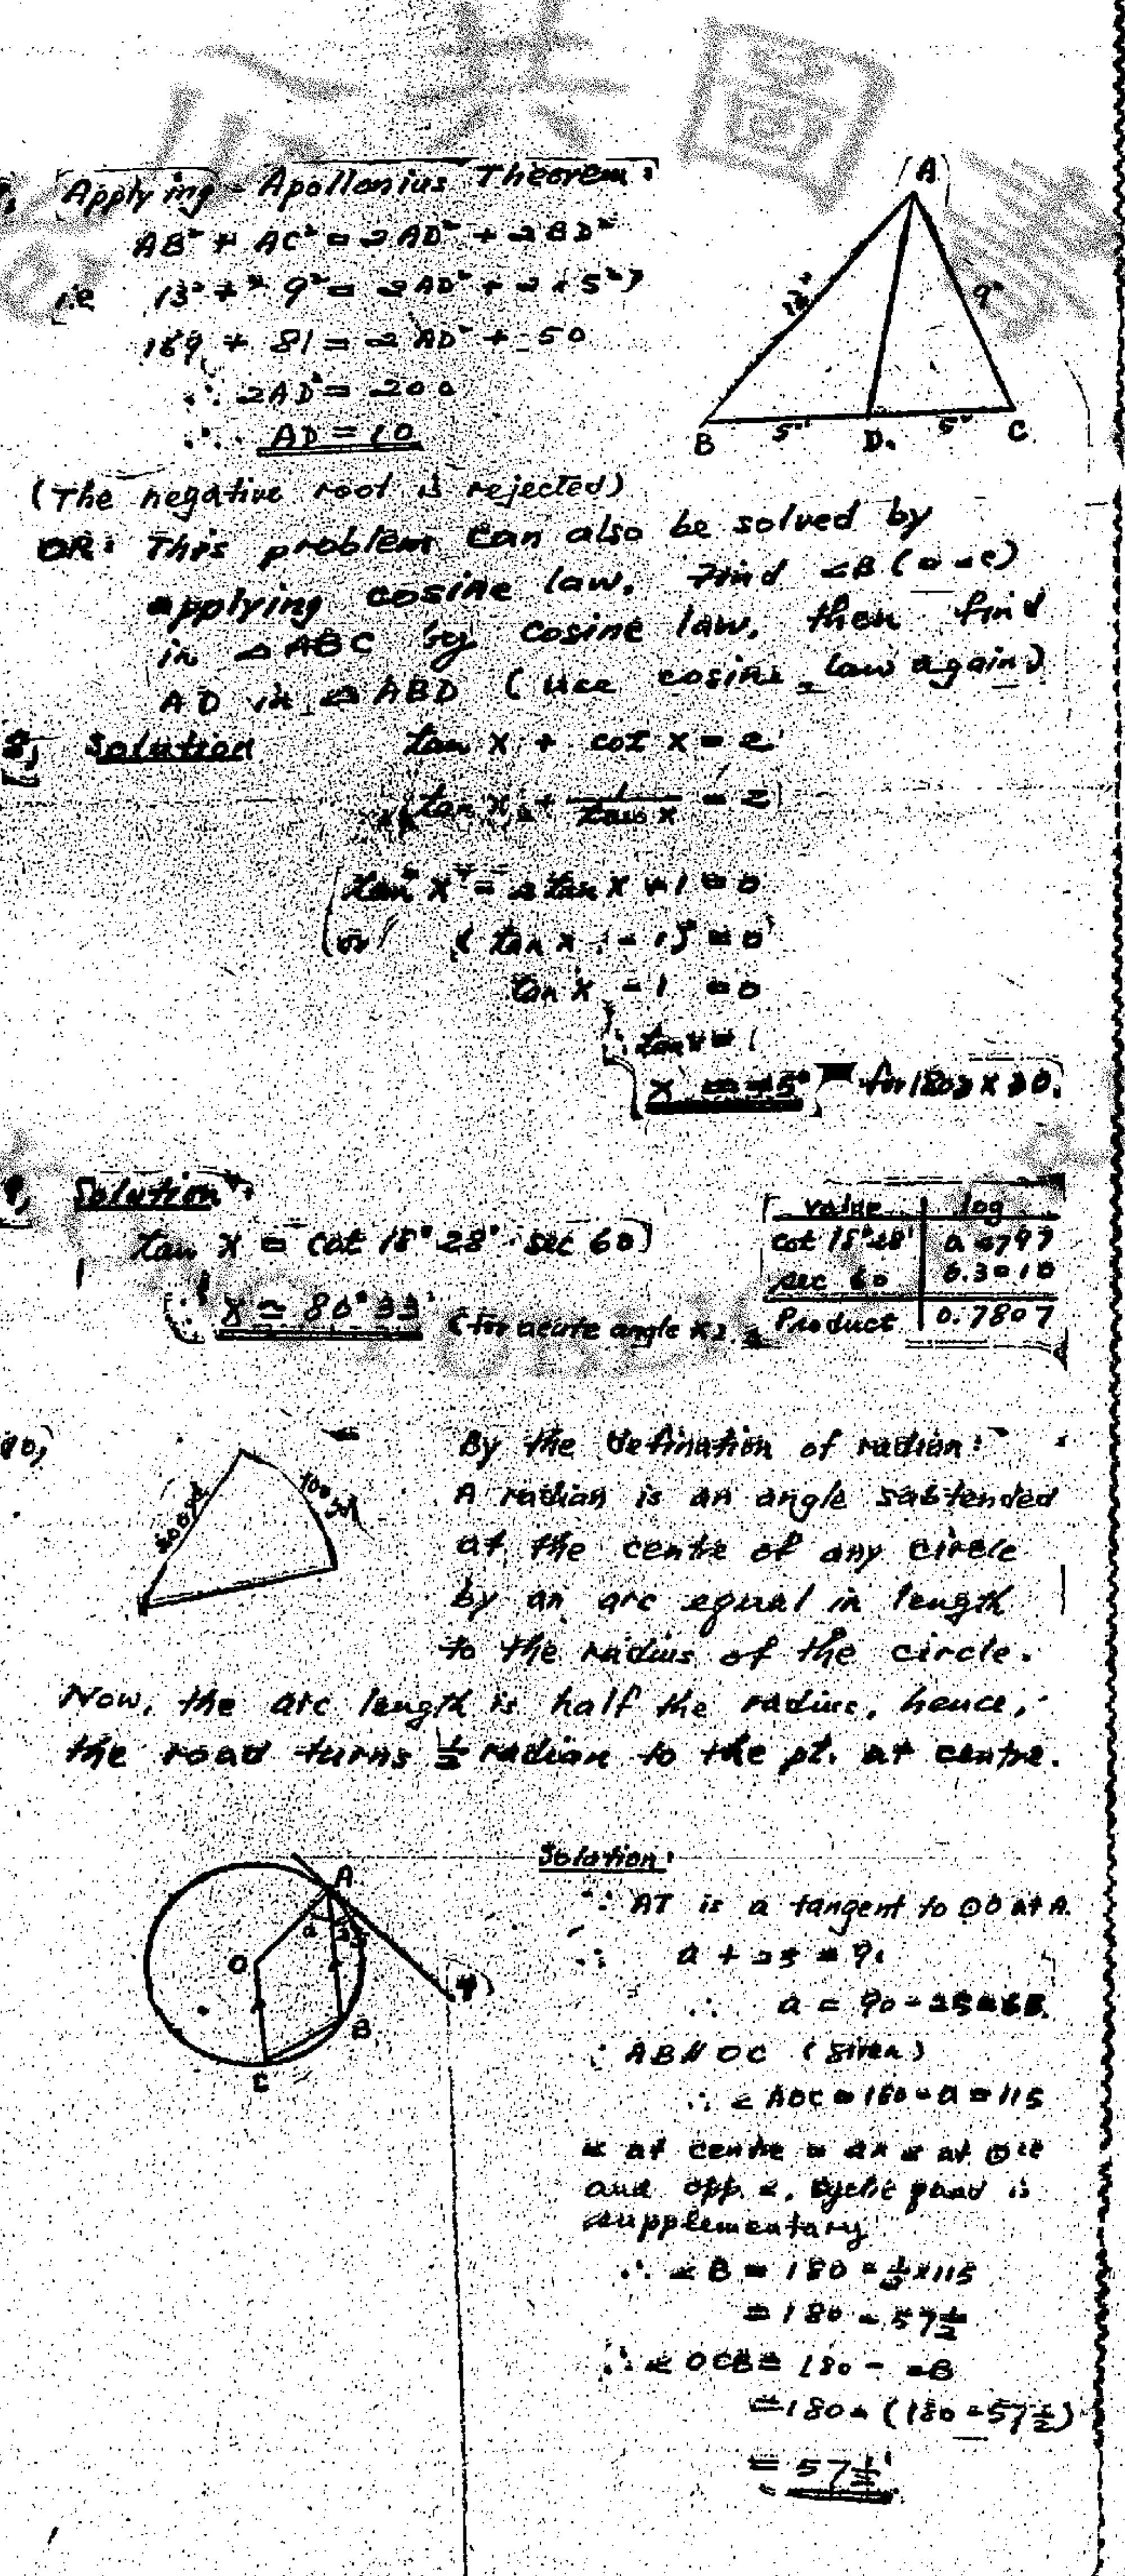 Applying Apollonius Theorem:
AB² + AC² = 2AD² + 2BD²
i.e 13² + 9² = 2AD² + 2 × 5²
169 + 81 = 2AD² + 50
∴ 2AD² = 200
∴ AD = 10
A
13"
9"
B 5" D. 5" C
(The negative root is rejected)
OR: This problem can also be solved by
applying cosine law. Find ∠B
in △ABC by cosine law, then find
AD in △ABD (use cosine law again)
8, Solution tan x + cot x = 2
tan x + 1/tan x = 2
tan² x - 2 tan x + 1 = 0
or (tan x - 1)² = 0
tan x - 1 = 0
∴ tan x = 1
x = 45° for 180 > x > 0.
9, Solution
tan x = cot 18°28' sec 60
∴ x = 80°33' (for acute angle x).
value | log
cot 18°28' | 0.4797
sec 60 | 0.3010
Product | 0.7807
10,
By the defination of radian:
A radian is an angle subtended
at the centre of any circle
by an arc equal in length
to the radius of the circle.
Now, the arc length is half the radius, hence,
the road turns ½ radian to the pt. at centre.
Solution:
∵ AT is a tangent to ⊙O at A.
∴ a + 25 = 90
∴ a = 90 - 25 = 65.
∵ AB // OC (given)
∴ ∠AOC = 180 - a = 115
∠ at centre = 2 × ∠ at ⊙ce
and opp. ∠, cyclic quad is
supplementary
∴ ∠B = 180 - ½ × 115
= 180 - 57½
∴ ∠OCB = 180 - ∠B
= 180 - (180 - 57½)
= 57½°
A
a 25
O
T
B
C